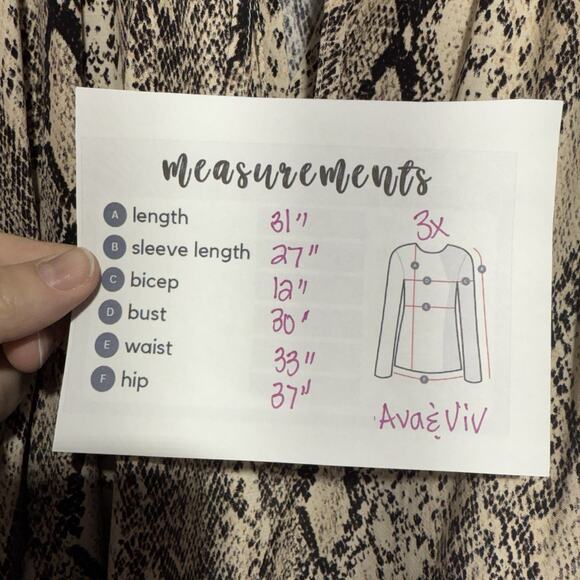 measurements
A length 31"
B sleeve length 27"
C bicep 12"
D bust 30"
E waist 33"
F hip 37"
3x
Ava & Viv